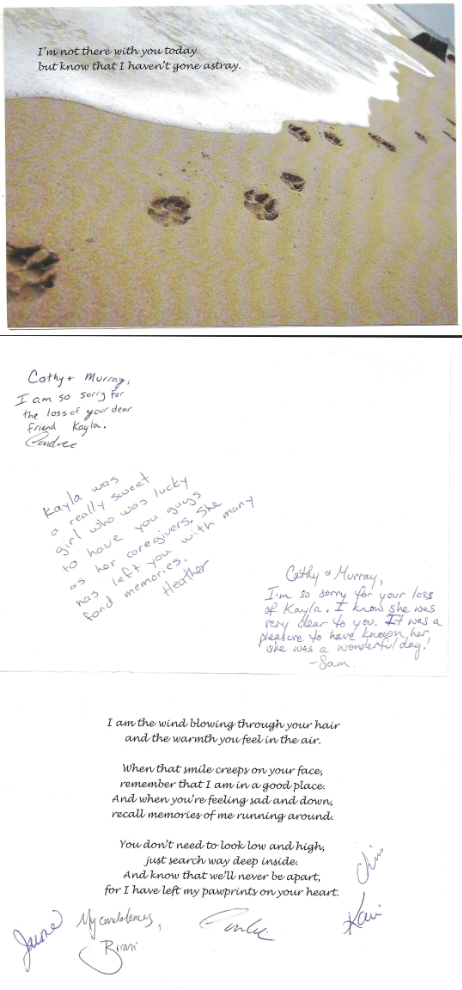 I'm not there with you today
but know that I haven't gone astray.
Cathy + Murray,
I am so sorry for
the loss of your dear
friend Kayla.
Kayla was
a really sweet
girl who was lucky
to have you guys
as her caregivers. She
has left you with many
fond memories.
Heather
Cathy & Murray,
I'm so sorry for your loss
of Kayla. I know she was
very dear to you. It was a
pleasure to have known her,
she was a wonderful dog!
- Sam
I am the wind blowing through your hair
and the warmth you feel in the air.
When that smile creeps on your face,
remember that I am in a good place.
And when you're feeling sad and down,
recall memories of me running around.
You don't need to look low and high,
just search way deep inside.
And know that we'll never be apart,
for I have left my pawprints on your heart.
Chris
My condolences,